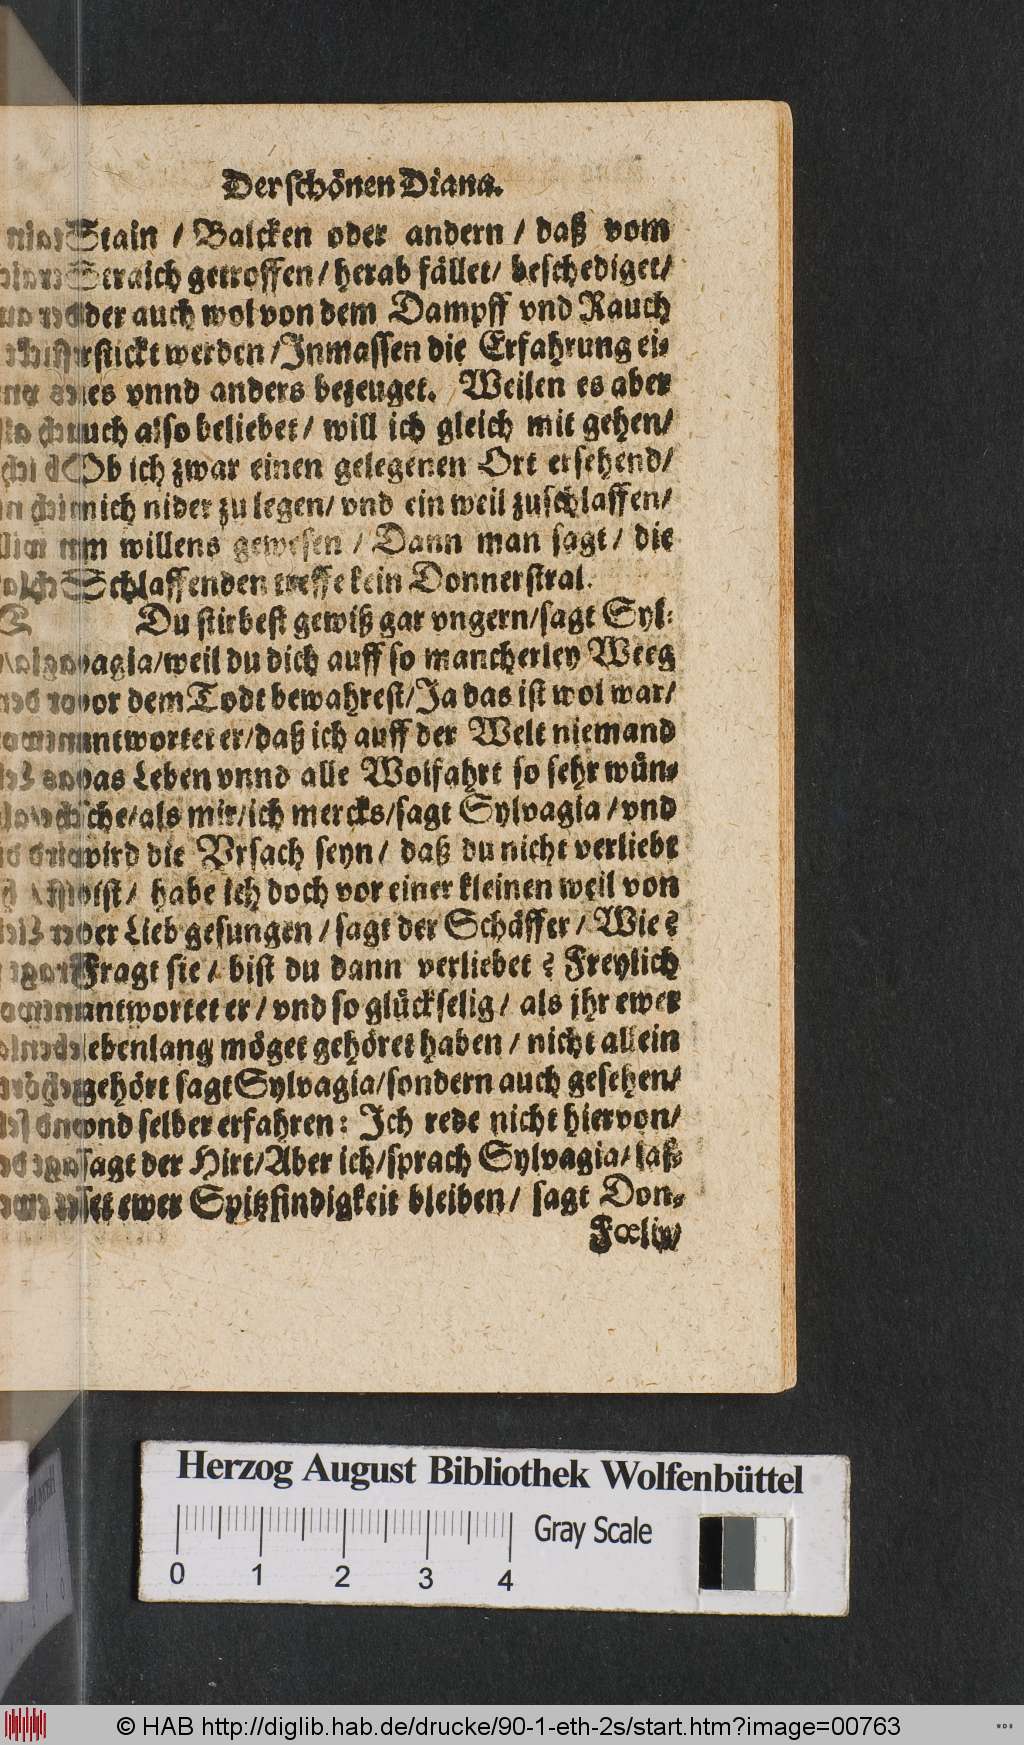 Der schönen Diana.
Stain / Balcken oder andern / daß vom
Straich getroffen / herab fället / beschediget /
oder auch wol von dem Dampff vnd Rauch
erstickt werden / Inmassen die Erfahrung ei-
nes vnnd anders bezeuget. Weilen es aber
euch also beliebet / will ich gleich mit gehen /
Ob ich zwar einen gelegenen Ort ersehend /
mich nider zu legen / vnd ein weil zuschlaffen /
willens gewesen / Dann man sagt / die
Schlaffenden treffe kein Donnerstral.
Du stirbest gewiß gar vngern / sagt Syl-
vagia / weil du dich auff so mancherley Weeg
vor dem Todt bewahrest / Ja das ist wol war /
antwortet er / daß ich auff der Welt niemand
das Leben vnnd alle Wolfahrt so sehr wün-
sche / als mir / ich mercks / sagt Sylvagia / vnd
wird die Vrsach seyn / daß du nicht verliebt
bist / habe ich doch vor einer kleinen weil von
der Lieb gesungen / sagt der Schäffer / Wie?
Fragt sie / bist du dann verliebet? Freylich
antwortet er / vnd so glückselig / als ihr ewer
lebenlang möget gehöret haben / nicht allein
gehört sagt Sylvagia / sondern auch gesehen /
vnd selber erfahren: Ich rede nicht hiervon /
sagt der Hirt / Aber ich / sprach Sylvagia / las-
set ewer Spitzfindigkeit bleiben / sagt Don-
Fœlix /
Herzog August Bibliothek Wolfenbüttel
Gray Scale
0 1 2 3 4
© HAB http://diglib.hab.de/drucke/90-1-eth-2s/start.htm?image=00763